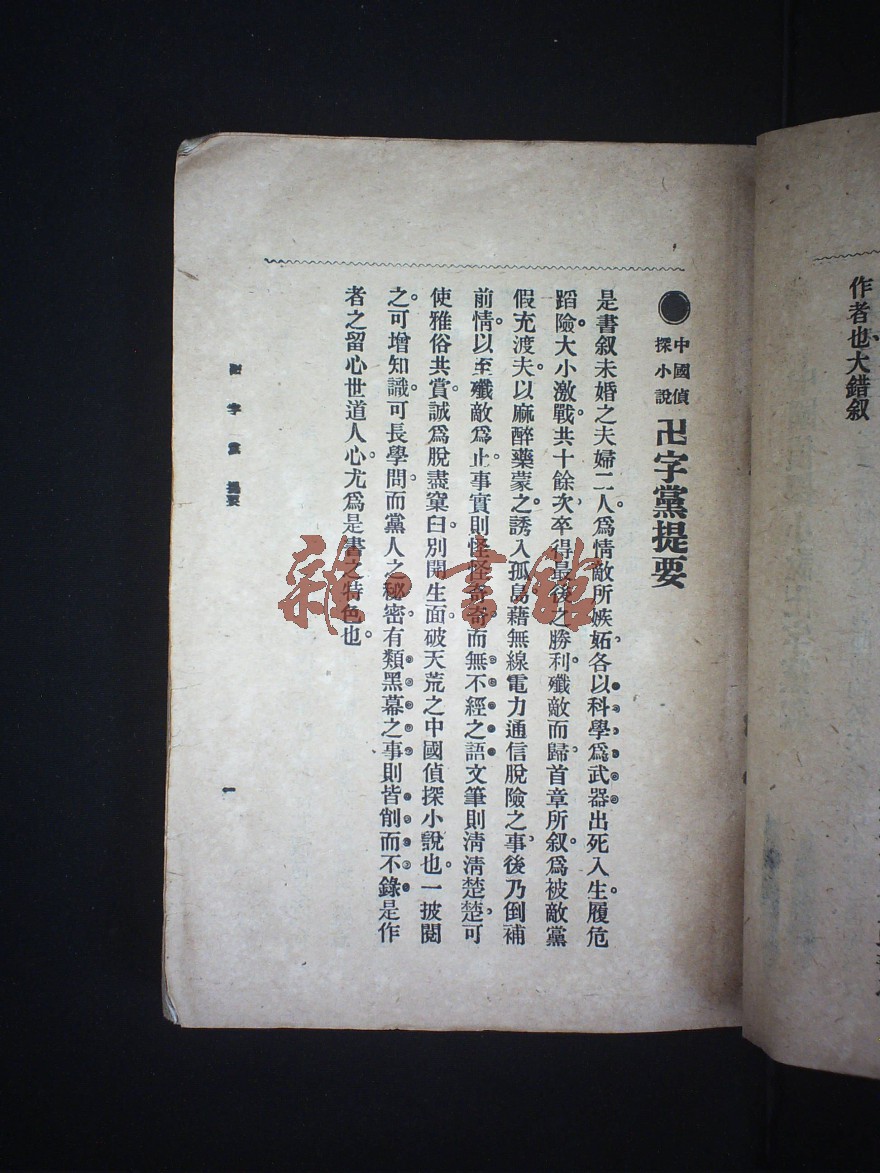 作者也大錯叙
●中國偵探小說 卍字黨提要
是書叙未婚之夫婦二人。爲情敵所嫉妬、各以科學爲武器出死入生。履危
蹈險。大小激戰共十餘次、卒得最後之勝利。殲敵而歸、首章所叙。爲被敵黨
假充渡夫。以麻醉藥蒙之。誘入孤島藉無線電力通信脫險之事、後乃倒補
前情。以至殲敵爲止。事實則怪怪奇奇。而無不經之語文筆則淸淸楚楚、可
使雅俗共賞。誠爲脫盡窠臼。別開生面。破天荒之中國偵探小說也。一披閱
之。可增知識。可長學問。而黨人之秘密有類黑幕之事則皆削而不錄是作
者之留心世道人心。尤爲是書之特色也。
字黨 提要
一
雜·書館